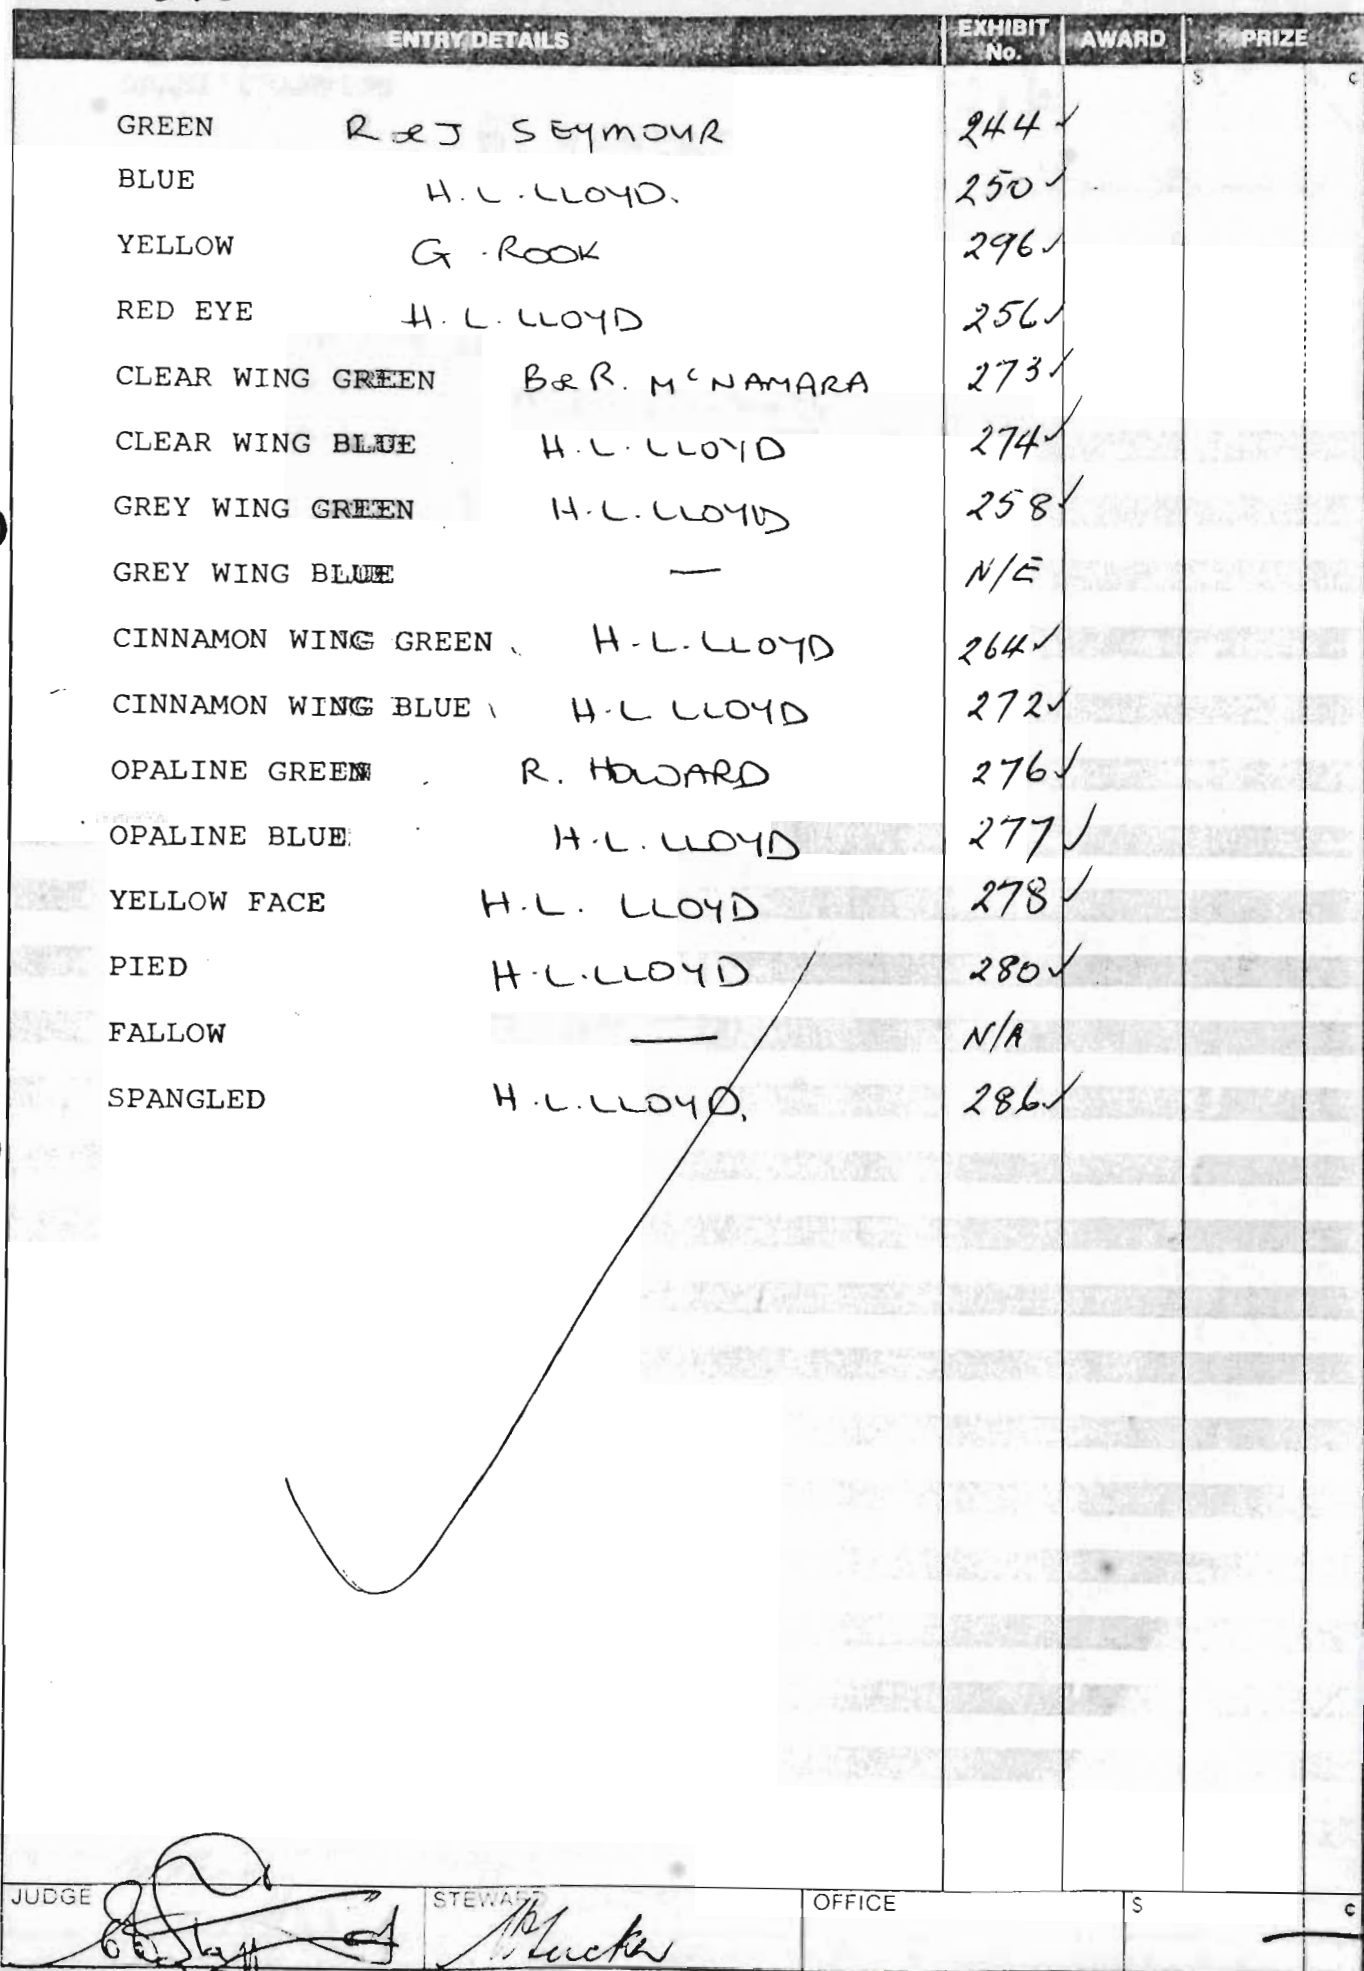 ENTRY DETAILS EXHIBIT No. AWARD PRIZE
$ c
GREEN R & J SEYMOUR 244 ✓
BLUE H. L. LLOYD. 250 ✓
YELLOW G. ROOK 296 ✓
RED EYE H. L. LLOYD 256 ✓
CLEAR WING GREEN B & R. McNAMARA 273 ✓
CLEAR WING BLUE H. L. LLOYD 274 ✓
GREY WING GREEN H. L. LLOYD 258 ✓
GREY WING BLUE — N/E
CINNAMON WING GREEN H. L. LLOYD 264 ✓
CINNAMON WING BLUE H. L LLOYD 272 ✓
OPALINE GREEN R. HOWARD 276 ✓
OPALINE BLUE H. L. LLOYD 277 ✓
YELLOW FACE H. L. LLOYD 278 ✓
PIED H. L. LLOYD 280 ✓
FALLOW — N/A
SPANGLED H. L. LLOYD. 286 ✓
JUDGE STEWARD OFFICE $ c